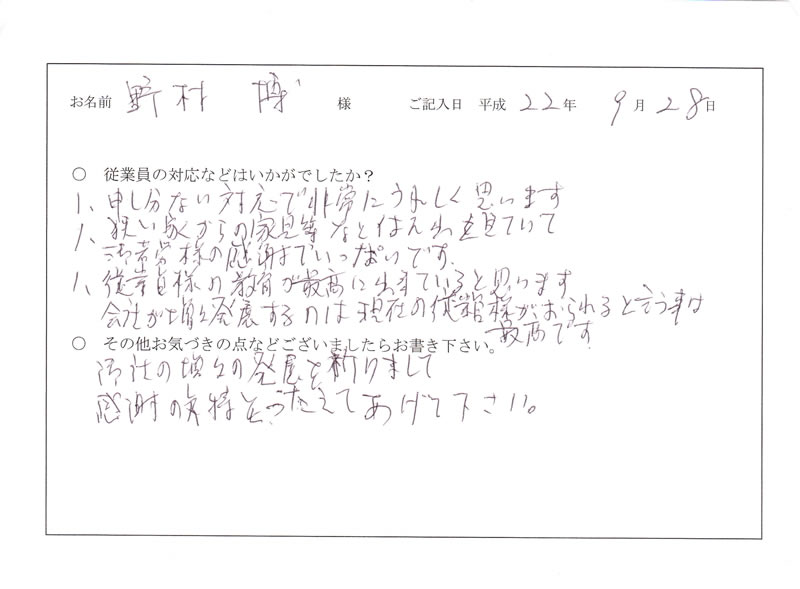 お名前 野村 博 様 ご記入日 平成 22年 9月 28日
○ 従業員の対応などはいかがでしたか？
1、申し分ない対応で非常にうれしく思います
1、狭い家からの家具等などはえ出を見ていて
御苦労様の感謝でいっぱいです.
1、従業員様の教育が最高に出来ていると思います
会社が増々発展するのは現在の従業員様がおられると言う事は
最高です.
○ その他お気づきの点などございましたらお書き下さい。
御社の増々の発展を祈りまして
感謝の気持をつたえてあげて下さい。